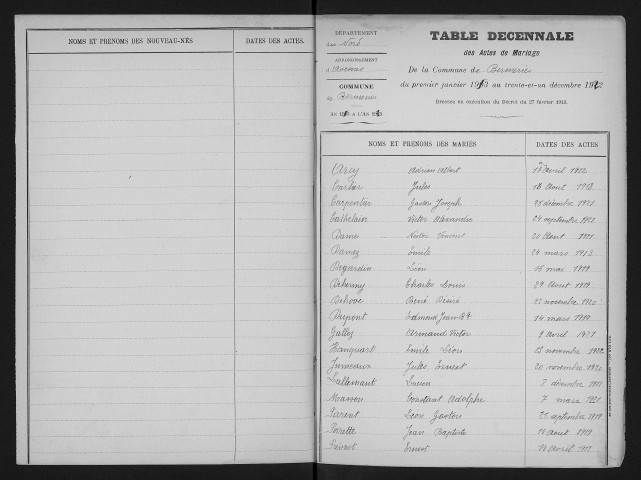 NOMS ET PRÉNOMS DES NOUVEAU-NÉS DATES DES ACTES.
DÉPARTEMENT
du Nord
ARRONDISSEMENT
d'Avesnes
COMMUNE
de Bermeries
TABLE DÉCENNALE
des Actes de Mariage
De la Commune de Bermeries
du premier janvier 1913 au trente-et-un décembre 1922
Dressée en exécution du Décret du 27 février 1913.
NOMS ET PRÉNOMS DES MARIÉS DATES DES ACTES
Arcy Adrien Albert avril 1922
Carlier Jules 18 Août 1913
Carpentier Gaston Joseph 25 décembre 1921
Cathelain Victor Alexandre 24 septembre 1921
Dame Victor Vincent 20 Août 1921
Damez Emile 24 mars 1913
Degardin Léon 15 mai 1919
Delhemmy Charles Louis 29 Août 1919
Dehove René Désiré 22 novembre 1920
Dupont Edmond Jean Bte 14 mars 1919
Gallez Armand Victor 9 avril 1921
Hanquart Emile Léon 25 novembre 1922
Jumeaux Jules Ernest 20 novembre 1920
Lallemant Lucien 7 décembre 1919
Manon Constant Adolphe 7 mars 1921
Parent Léon Gaston 25 septembre 1919
Pirette Jean Baptiste 16 Août 1919
Prévost Ernest 14 avril